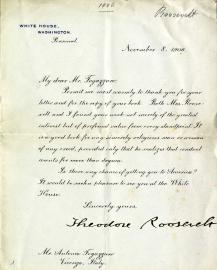 1906
Roosevelt
WHITE HOUSE,
WASHINGTON.
Personal
November 8, 1906.
My dear Mr. Fogazzaro:
Permit me most warmly to thank you for your
letter and for the copy of your book. Both Mrs. Roose-
velt and I found your work not merely of the greatest
interest but of profound value from every standpoint. It
is a good book for any sincerely religious man or woman
of any creed, provided only that he realizes that conduct
counts for more than dogma.
Is there any chance of getting you to America?
It would be such a pleasure to see you at the White
House.
Sincerely yours,
Theodore Roosevelt
Mr. Antonio Fogazzaro
Vicenza, Italy.